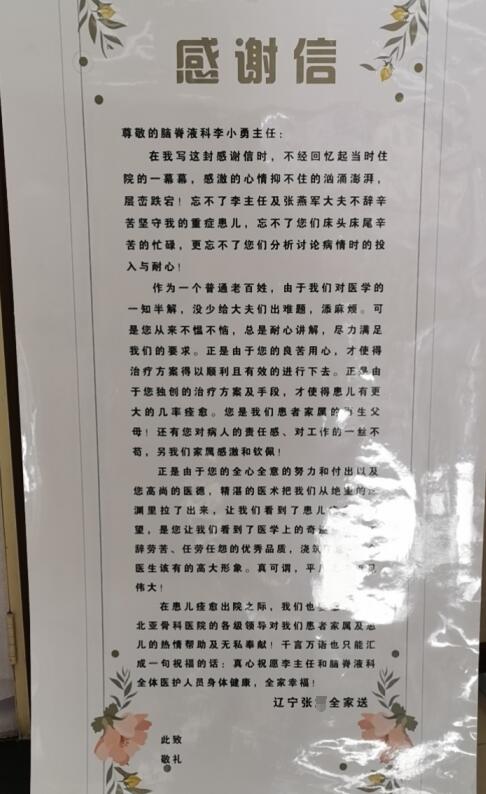 感谢信
尊敬的脑脊液科李小勇主任：
在我写这封感谢信时，不经回忆起当时住
院的一幕幕，感激的心情抑不住的汹涌澎湃，
层峦跌宕！忘不了李主任及张燕军大夫不辞辛
苦坚守我的重症患儿，忘不了您们床头床尾辛
苦的忙碌，更忘不了您们分析讨论病情时的投
入与耐心！
作为一个普通老百姓，由于我们对医学的
一知半解，没少给大夫们出难题，添麻烦。可
是您从来不愠不恼，总是耐心讲解，尽力满足
我们的要求。正是由于您的良苦用心，才使得
治疗方案得以顺利且有效的进行下去。正是由
于您独创的治疗方案及手段，才使得患儿有更
大的几率痊愈。您是我们患者家属的再生父
母！还有您对病人的责任感、对工作的一丝不
苟，另我们家属感激和钦佩！
正是由于您的全心全意的努力和付出以及
您高尚的医德，精湛的医术把我们从绝望的
渊里拉了出来，让我们看到了患儿
望，是您让我们看到了医学上的奇
辞劳苦、任劳任怨的优秀品质，浇筑
医生该有的高大形象。真可谓，平
伟大！
在患儿痊愈出院之际，我们也
北亚骨科医院的各级领导对我们患者家属及患
儿的热情帮助及无私奉献！千言万语也只能汇
成一句祝福的话：真心祝愿李主任和脑脊液科
全体医护人员身体健康，全家幸福！
辽宁张 全家送
此致
敬礼